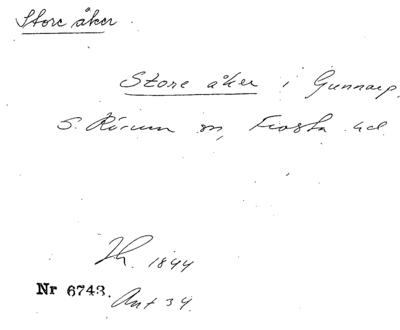 Store åker
Store åker i Gunnarp.
S. Rörum sn, Frosta hd
Lh. 1844
Nr 6743. Ant 34.